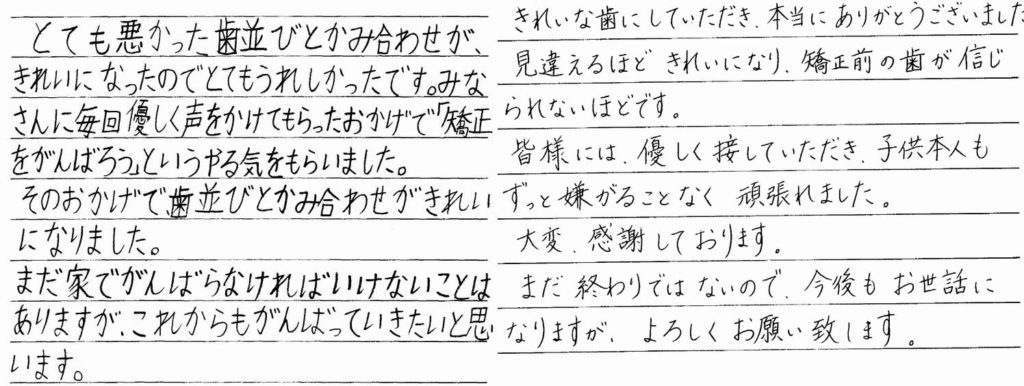 とても悪かった歯並びとかみ合わせが、
きれいになったのでとてもうれしかったです。みな
さんに毎回優しく声をかけてもらったおかげで「矯正
をがんばろう」というやる気をもらいました。
そのおかげで歯並びとかみ合わせがきれい
になりました。
まだ家でがんばらなければいけないことは
ありますが、これからもがんばっていきたいと思
います。
きれいな歯にしていただき、本当にありがとうございました
見違えるほどきれいになり、矯正前の歯が信じ
られないほどです。
皆様には、優しく接していただき、子供本人も
ずっと嫌がることなく頑張れました。
大変、感謝しております。
まだ終わりではないので、今後もお世話に
なりますが、よろしくお願い致します。